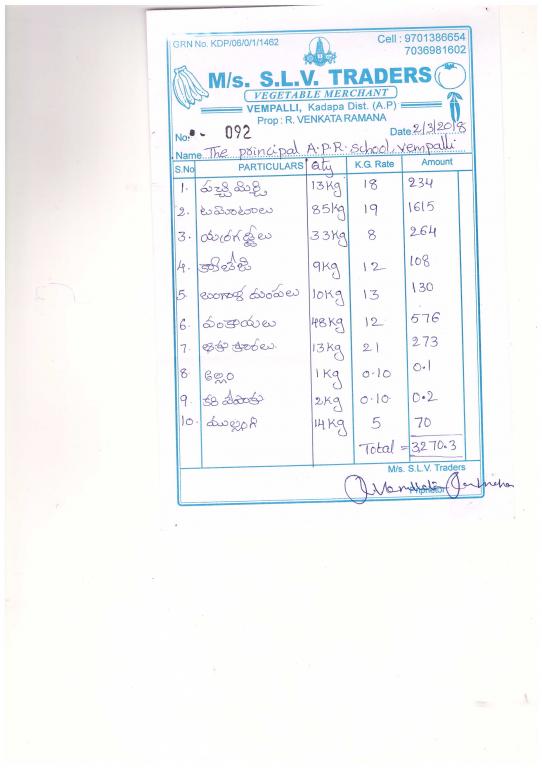 GRN No. KDP/06/0/1/1462
Cell : 9701386654
7036981602
M/s. S.L.V. TRADERS
VEGETABLE MERCHANT
VEMPALLI, Kadapa Dist. (A.P)
Prop : R. VENKATA RAMANA
No. 092 Date 2/3/2018
Name The principal A.P.R. school, vempalli
S.No PARTICULARS Qty K.G. Rate Amount
1. పచ్చిమిర్చి 13Kg 18 234
2. టమోటాలు 85Kg 19 1615
3. 33Kg 8 264
4. 9Kg 12 108
5. బంగాళ దుంపలు 10Kg 13 130
6. వంకాయలు 48Kg 12 576
7. ఆకు కూరలు 13Kg 21 273
8. అల్లం 1Kg 0.10 0.1
9. 2Kg 0.10 0.2
10. ముల్లంగి 14Kg 5 70
Total = 3270.3
M/s. S.L.V. Traders